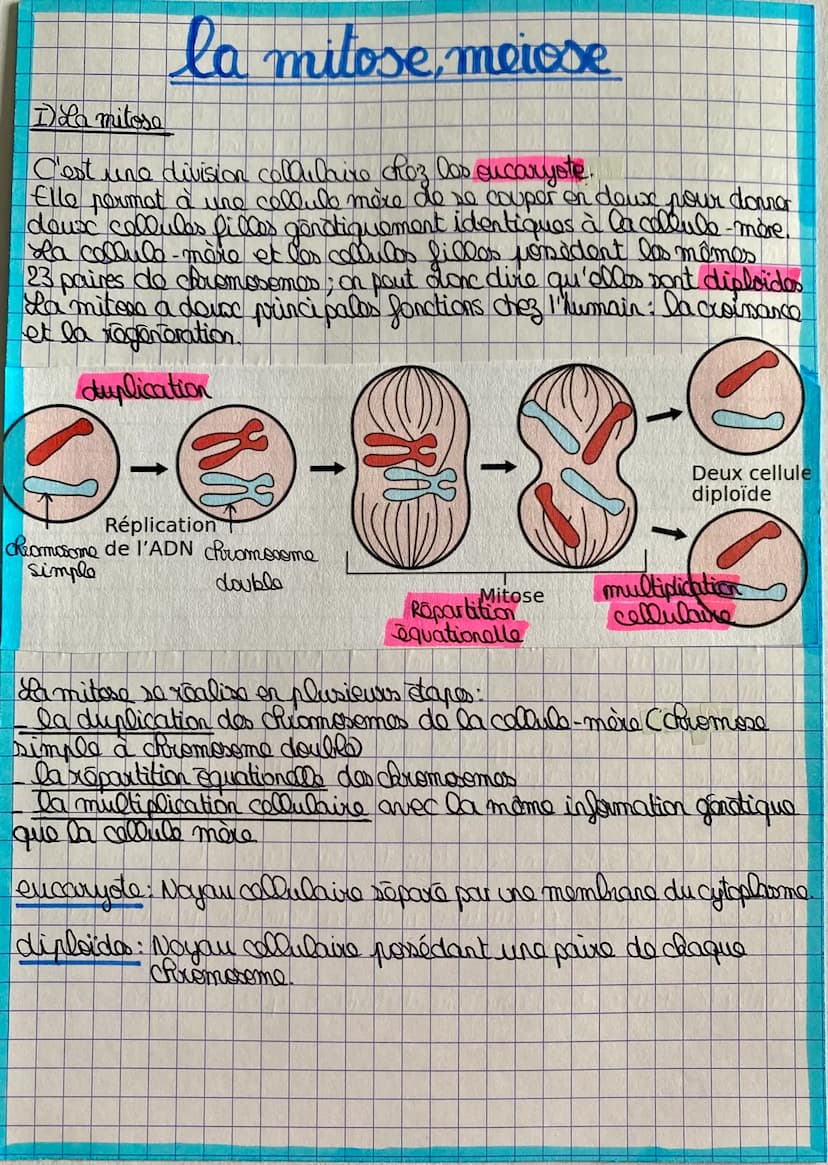 la mitose, meiose
I) La mitose
C'est une division cellulaire chez les eucaryote.
Elle permet à une cellule mère de se couper en deux pour donner
deux cellules filles génétiquement identiques à la cellule-mère.
La cellule-mère et les cellules filles possèdent les mêmes
23 paires de chromosomes ; on peut donc dire qu'elles sont diploïdes
La mitose a deux principales fonctions chez l'humain : la croissance
et la régénération.
duplication
Deux cellule
diploïde
Réplication
de l'ADN
chromosome
simple
chromosome
double
Mitose
Répartition
équationelle
multiplication
cellulaire
La mitose se réalise en plusieurs étapes :
- la duplication des chromosomes de la cellule-mère (chromose
simple à chromosome double)
- la répartition équationelle des chromosomes
- la multiplication cellulaire avec la même information génétique
que la cellule mère
eucaryote : Noyau cellulaire séparé par une membrane du cytoplasme.
diploïdes : Noyau cellulaire possédant une paire de chaque
chromosome.